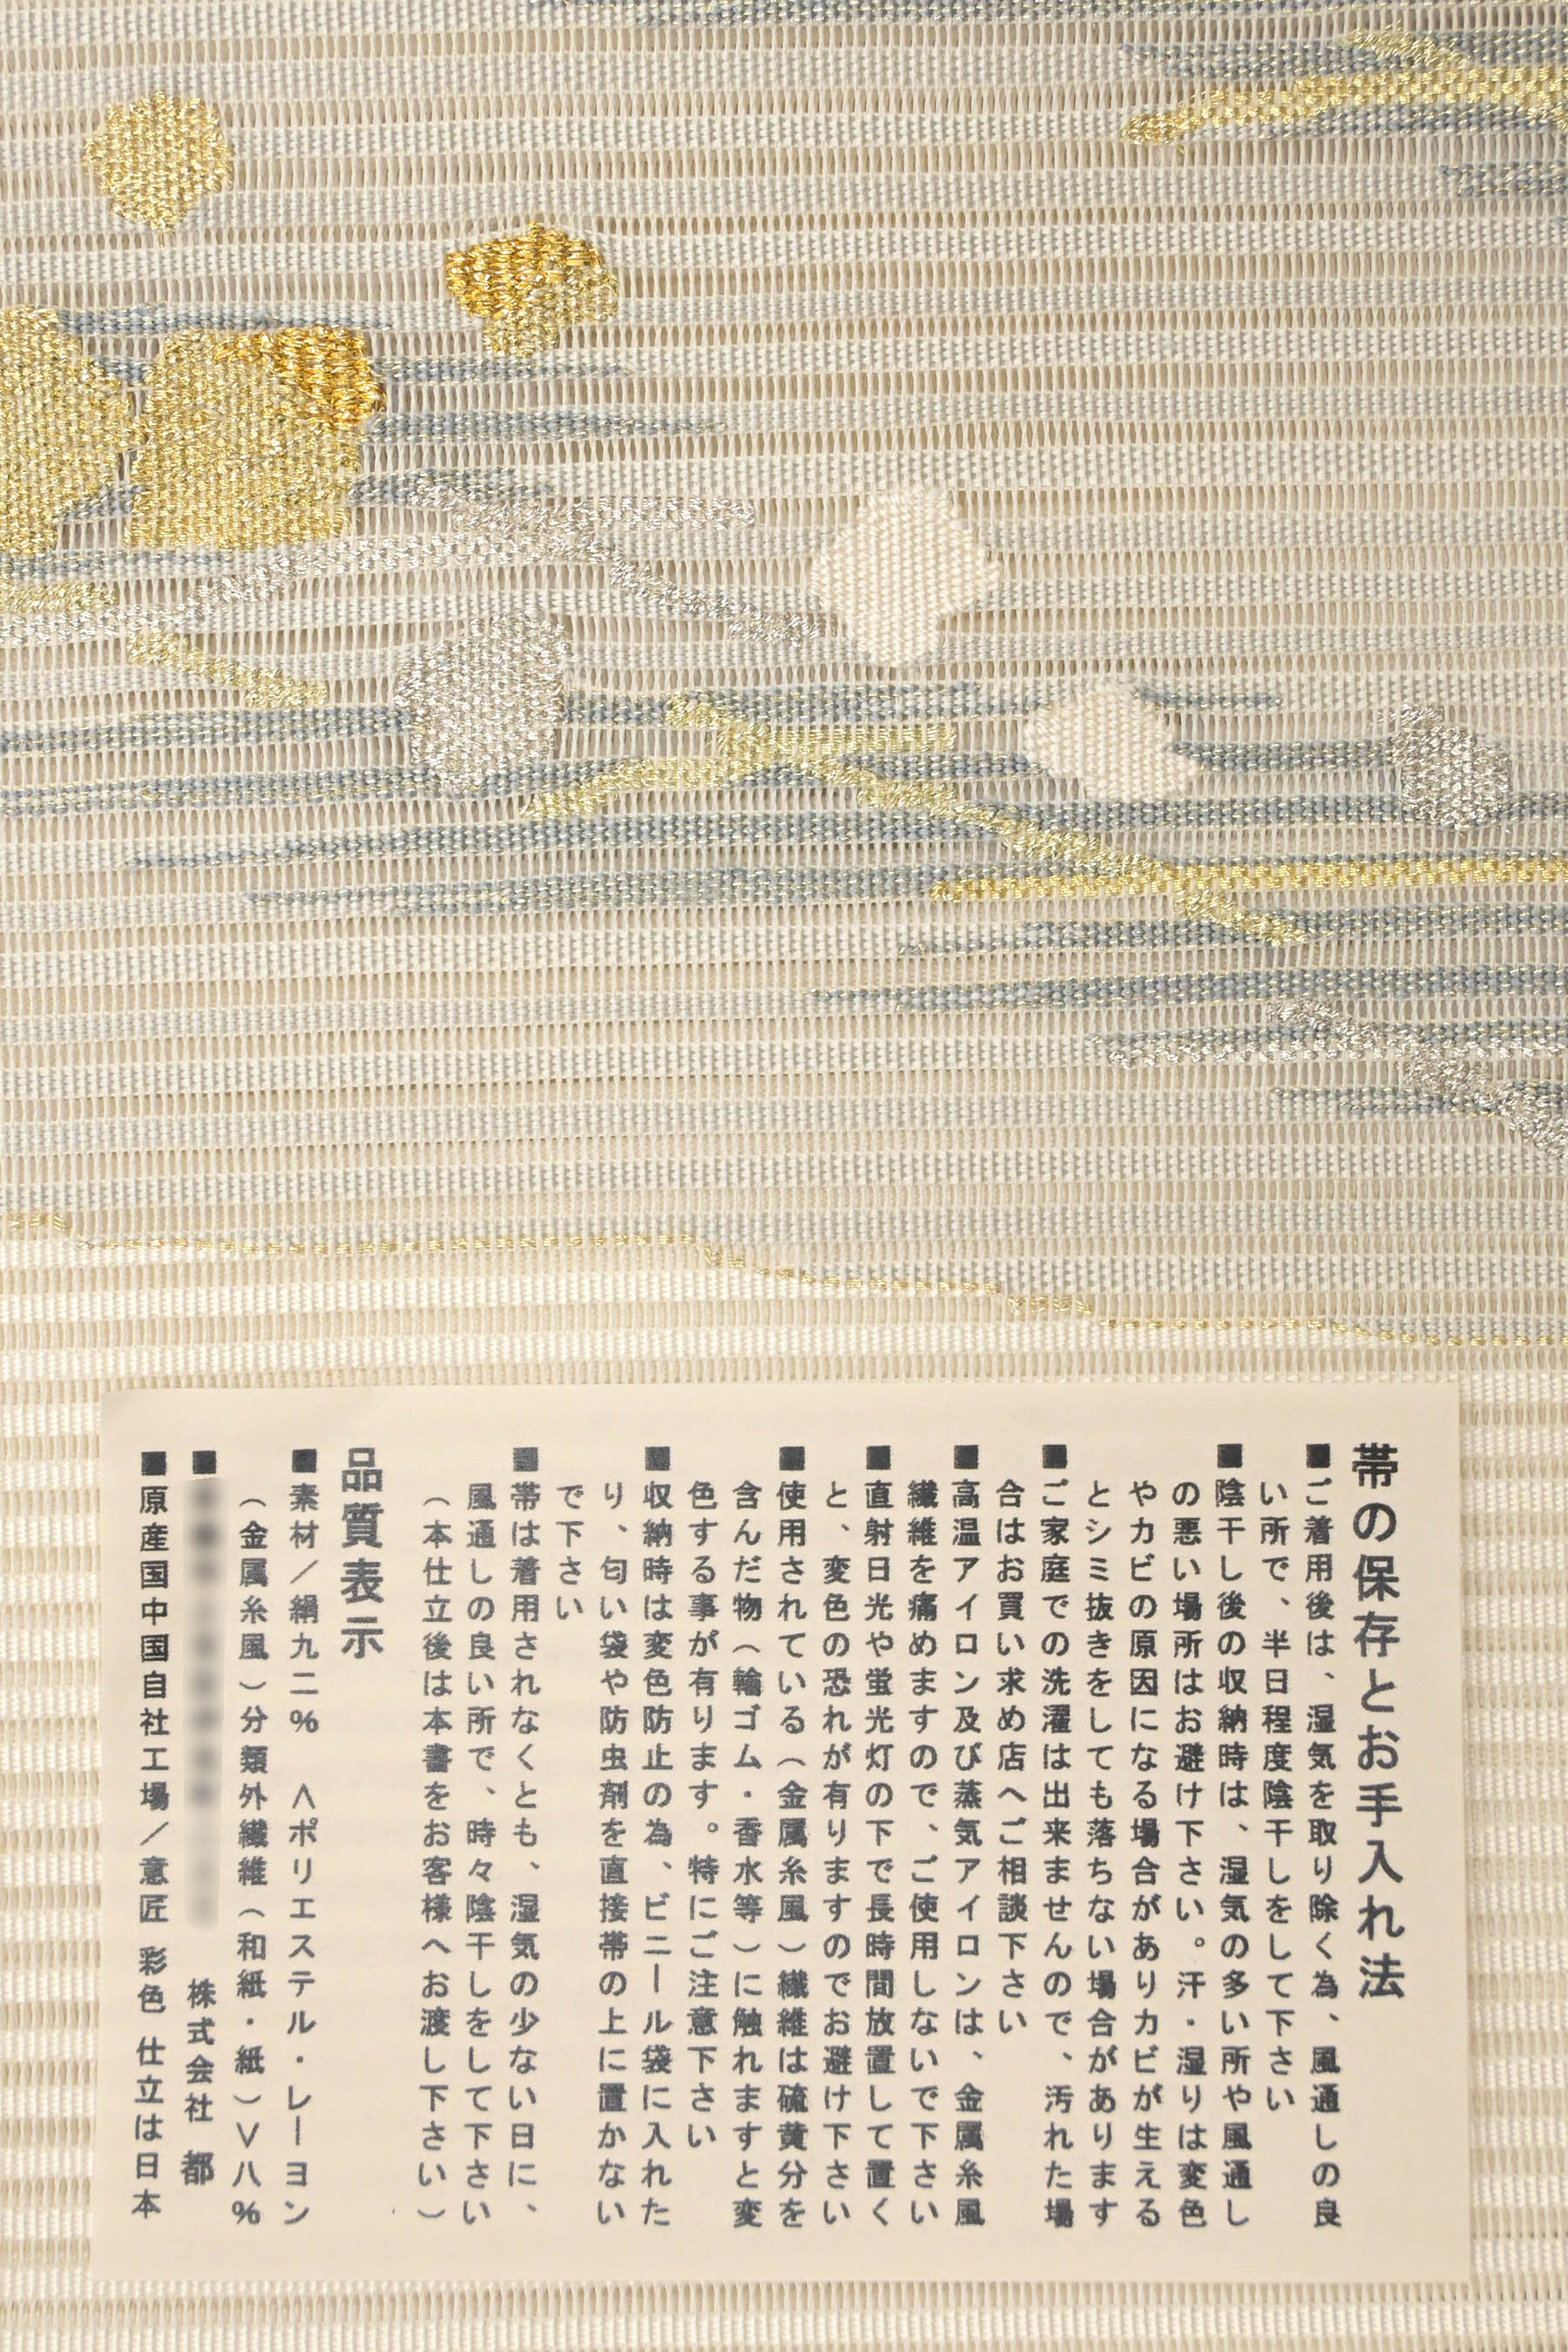 帯の保存とお手入れ法
■ご着用後は、湿気を取り除く為、風通しの良
い所で、半日程度陰干しをして下さい
■陰干し後の収納時は、湿気の多い所や風通し
の悪い場所はお避け下さい。汗・湿りは変色
やカビの原因になる場合がありカビが生える
とシミ抜きをしても落ちない場合があります
■ご家庭での洗濯は出来ませんので、汚れた場
合はお買い求め店へご相談下さい
■高温アイロン及び蒸気アイロンは、金属糸風
繊維を痛めますので、ご使用しないで下さい
■直射日光や蛍光灯の下で長時間放置して置く
と、変色の恐れが有りますのでお避け下さい
■使用されている（金属糸風）繊維は硫黄分を
含んだ物（輪ゴム・香水等）に触れますと変
色する事が有ります。特にご注意下さい
■収納時は変色防止の為、ビニール袋に入れた
り、匂い袋や防虫剤を直接帯の上に置かない
で下さい
■帯は着用されなくとも、湿気の少ない日に、
風通しの良い所で、時々陰干しをして下さい
（本仕立後は本書をお客様へお渡し下さい）
品質表示
■素材／絹九二％　＜ポリエステル・レーヨン
（金属糸風）分類外繊維（和紙・紙）＞八％
■ 株式会社 都
■原産国中国自社工場／意匠 彩色 仕立は日本